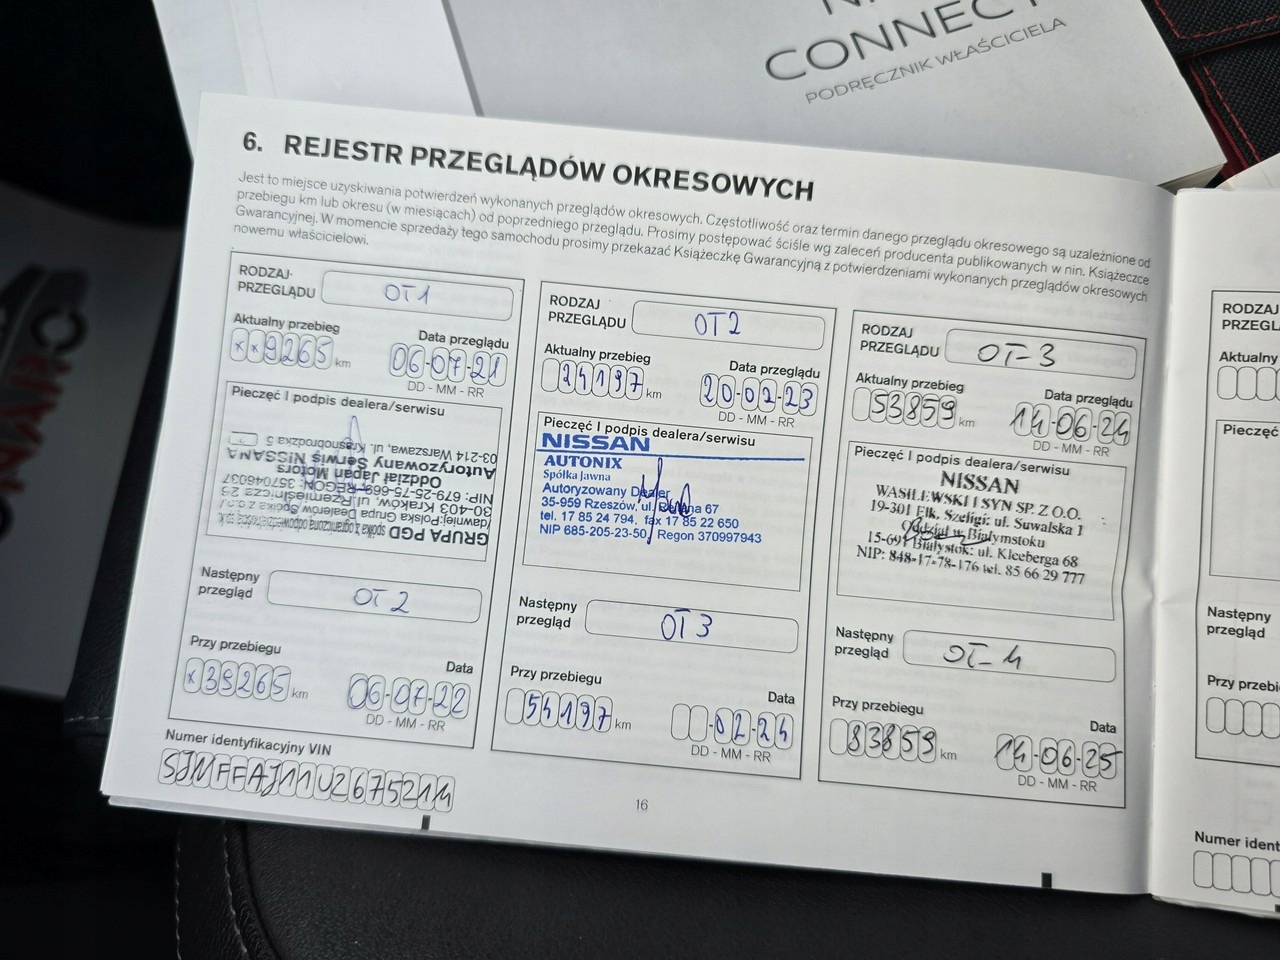 CONNECT
PODRĘCZNIK WŁAŚCICIELA
6. REJESTR PRZEGLĄDÓW OKRESOWYCH
Jest to miejsce uzyskiwania potwierdzeń wykonanych przeglądów okresowych. Częstotliwość oraz termin danego przeglądu okresowego są uzależnione od
przebiegu km lub okresu (w miesiącach) od poprzedniego przeglądu. Prosimy postępować ściśle wg zaleceń producenta publikowanych w nin. Książeczce
Gwarancyjnej. W momencie sprzedaży tego samochodu prosimy przekazać Książeczkę Gwarancyjną z potwierdzeniami wykonanych przeglądów okresowych
nowemu właścicielowi.
RODZAJ
PRZEGLĄDU OT1
Aktualny przebieg Data przeglądu
××9265 km 06-07-21
DD - MM - RR
Pieczęć I podpis dealera/serwisu
GRUPA PGD spółka z ograniczoną odpowiedzialnością sp.k.
/dawniej:Polska Grupa Dealerów Spółka z o.o./
30-403 Kraków, ul. Rzemieślnicza 23
NIP: 679-25-75-669, REGON: 357046037
Oddział Japan Motors
Autoryzowany Serwis NISSANA
03-214 Warszawa, ul. Krasnobrodzka 5
Następny
przegląd OT2
Przy przebiegu Data
×39265 km 06-07-22
DD - MM - RR
RODZAJ
PRZEGLĄDU OT2
Aktualny przebieg Data przeglądu
24197 km 20-02-23
DD - MM - RR
Pieczęć I podpis dealera/serwisu
NISSAN
AUTONIX
Spółka Jawna
Autoryzowany Dealer
35-959 Rzeszów, ul. 67
tel. 17 85 24 794, fax 17 85 22 650
NIP 685-205-23-50, Regon 370997943
Następny
przegląd OT3
Przy przebiegu Data
54197 km -02-24
DD - MM - RR
RODZAJ
PRZEGLĄDU OT-3
Aktualny przebieg Data przeglądu
53859 km 14-06-24
DD - MM - RR
Pieczęć I podpis dealera/serwisu
NISSAN
WASILEWSKI I SYN SP. Z O.O.
19-301 Ełk, Szeligi; ul. Suwalska 1
Oddział w Białymstoku
15-691 Białystok: ul. Kleeberga 68
NIP: 848-17-78-176 tel. 85 66 29 777
Następny
przegląd OT-4
Przy przebiegu Data
83859 km 14-06-25
DD - MM - RR
Numer identyfikacyjny VIN
SJNFFAJ11U2675214
16
RODZAJ
PRZEGL
Aktualny
Pieczęć
Następny
przegląd
Przy przebi
Numer ident